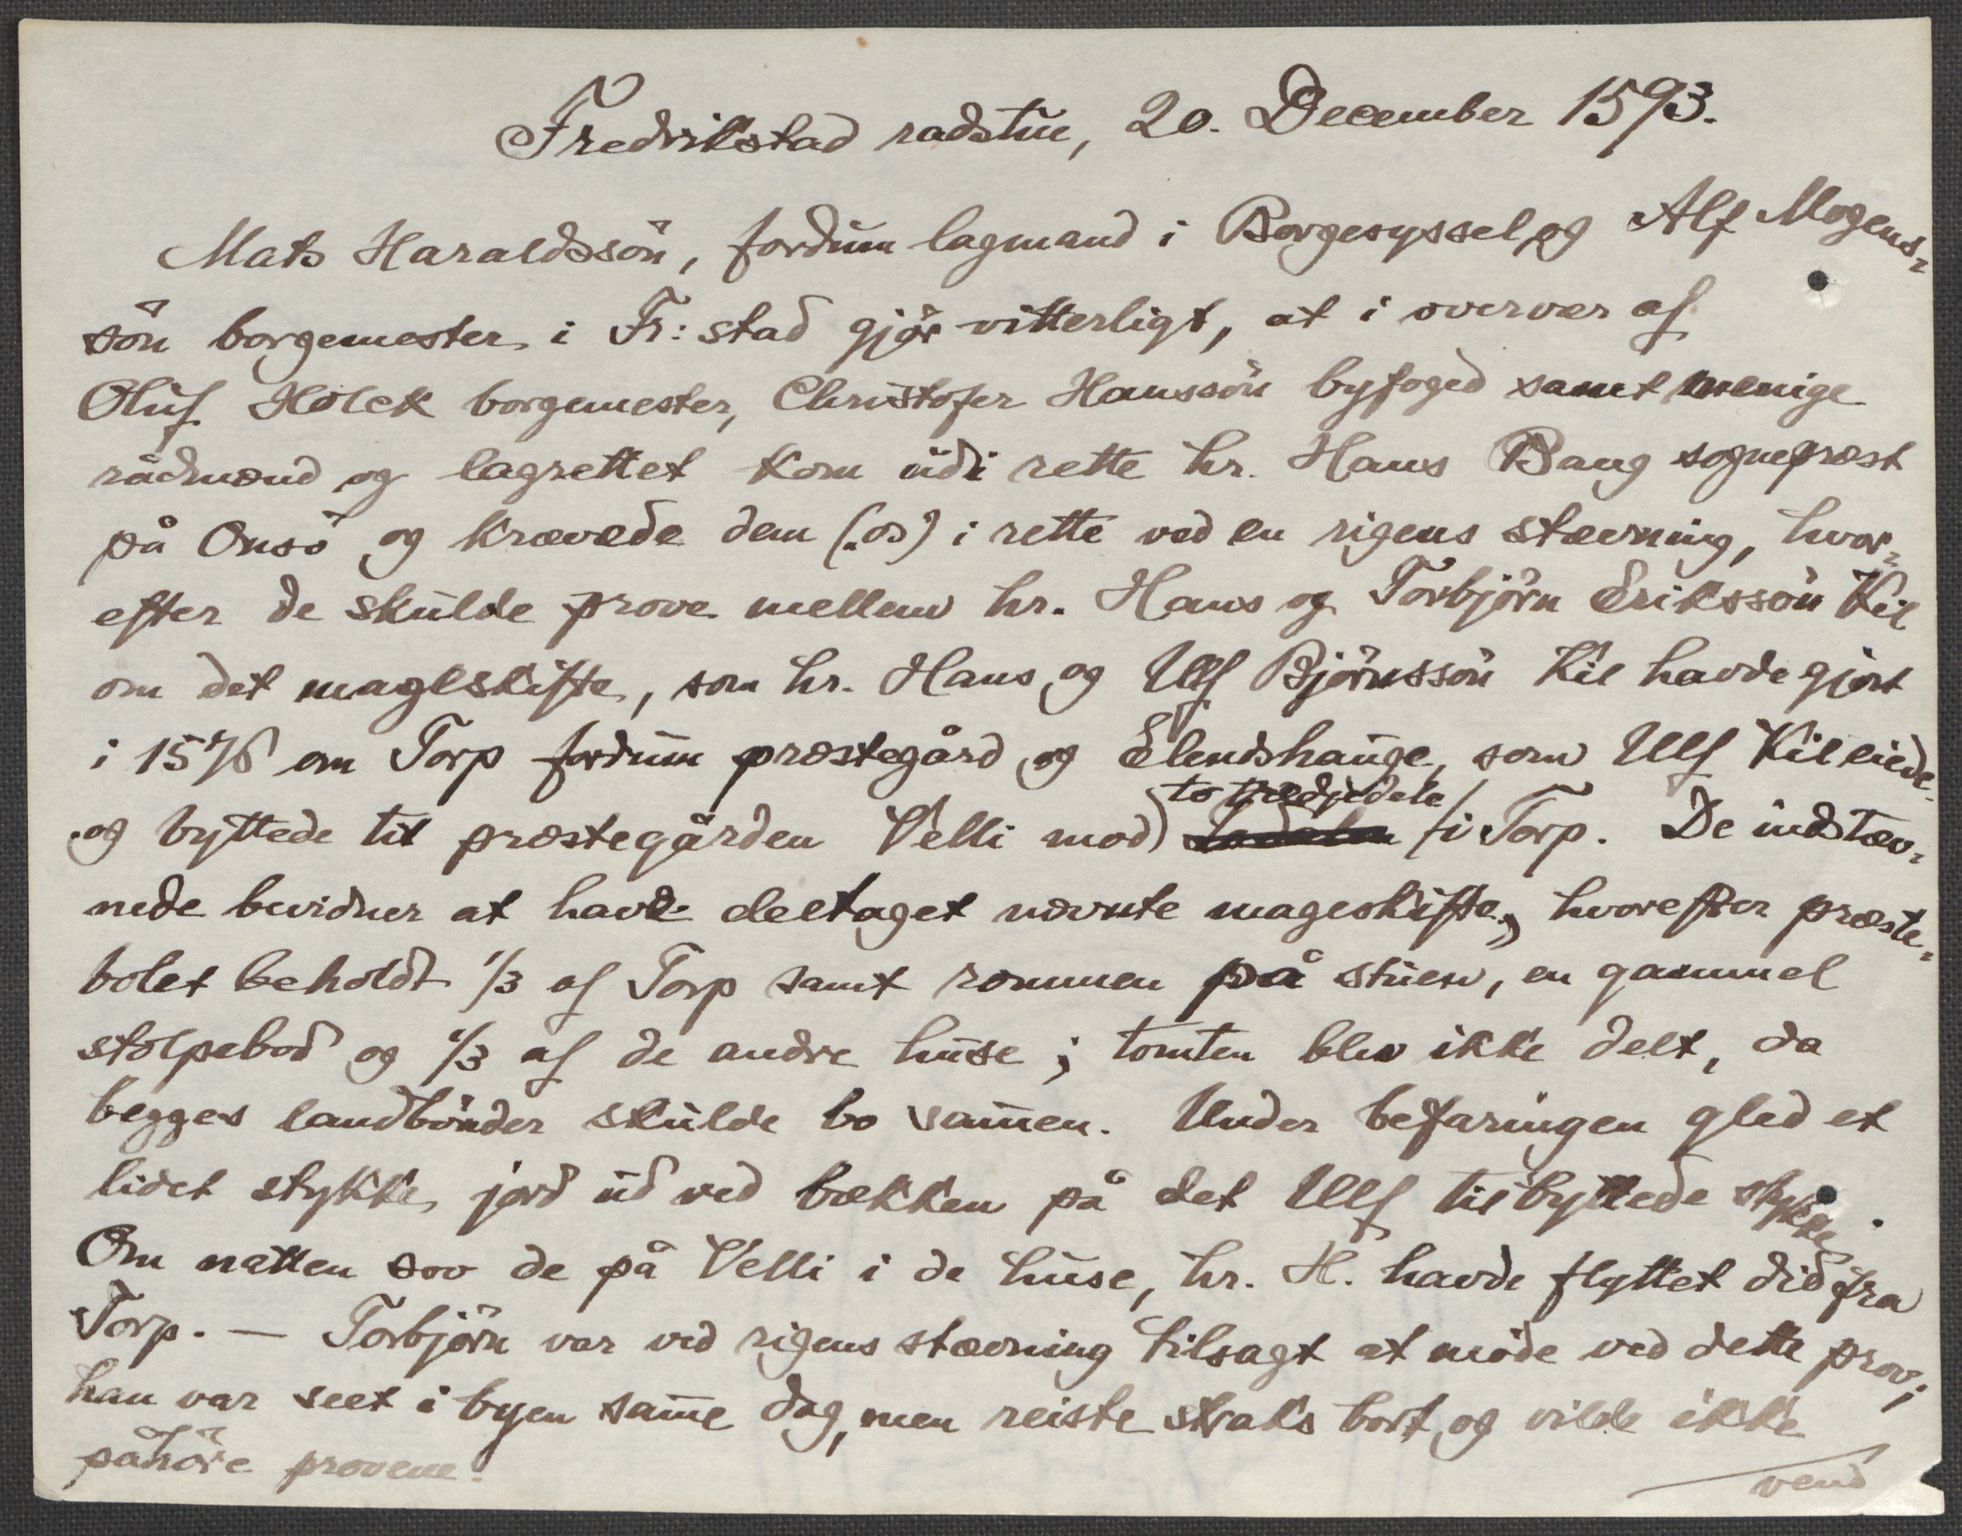 Fredrikstad radstue, 20. December 1593.
Mats Haraldssön, fordum lagmand i Borgesyssel og Alf Mogens-
sön borgemester i Fr: stad gjör vitterligt, at i overvær af
Oluf Holck borgemester, Christofer Hanssön byfoged samt menige
rådmænd og lagrettet kom udi rette hr. Hans Bang sognepræst
på Onsö og krævede dem (.os) i rette ved en rigens stævning, hvor-
efter de skulde prove mellem hr. Hans og Torbjörn Erikssön Kil
om det mageskifte, som hr. Hans og Ulf Björnssön Kil havde gjort
i 1576 om Torp fordum præstegård og Elendshauge, som Ulf Kil eiede
og byttede til præstegården Velli mod to trediedele i Torp. De indstæv-
nede bevidner at have deltaget nævnte mageskifte, hvorefter præste-
bolet beholdt 1/3 af Torp samt rommen på stuen, en gammel
stolpebod og 1/3 af de andre huse; tomten blev ikke delt, da
begges landbönder skulde bo sam̄en. Under befaringen gled et
lidet stykke jord ud ved bækken på det Ulf tilbyttede stykke.
Om natten sov de på Velli i de huse, hr. H. havde flyttet did fra
Torp. — Torbjörn var ved rigens stævning tilsagt at möde ved dette prov;
han var seet i byen sam̄e dag, men reiste straks bort og vilde ikke
påhöre provene.
vend